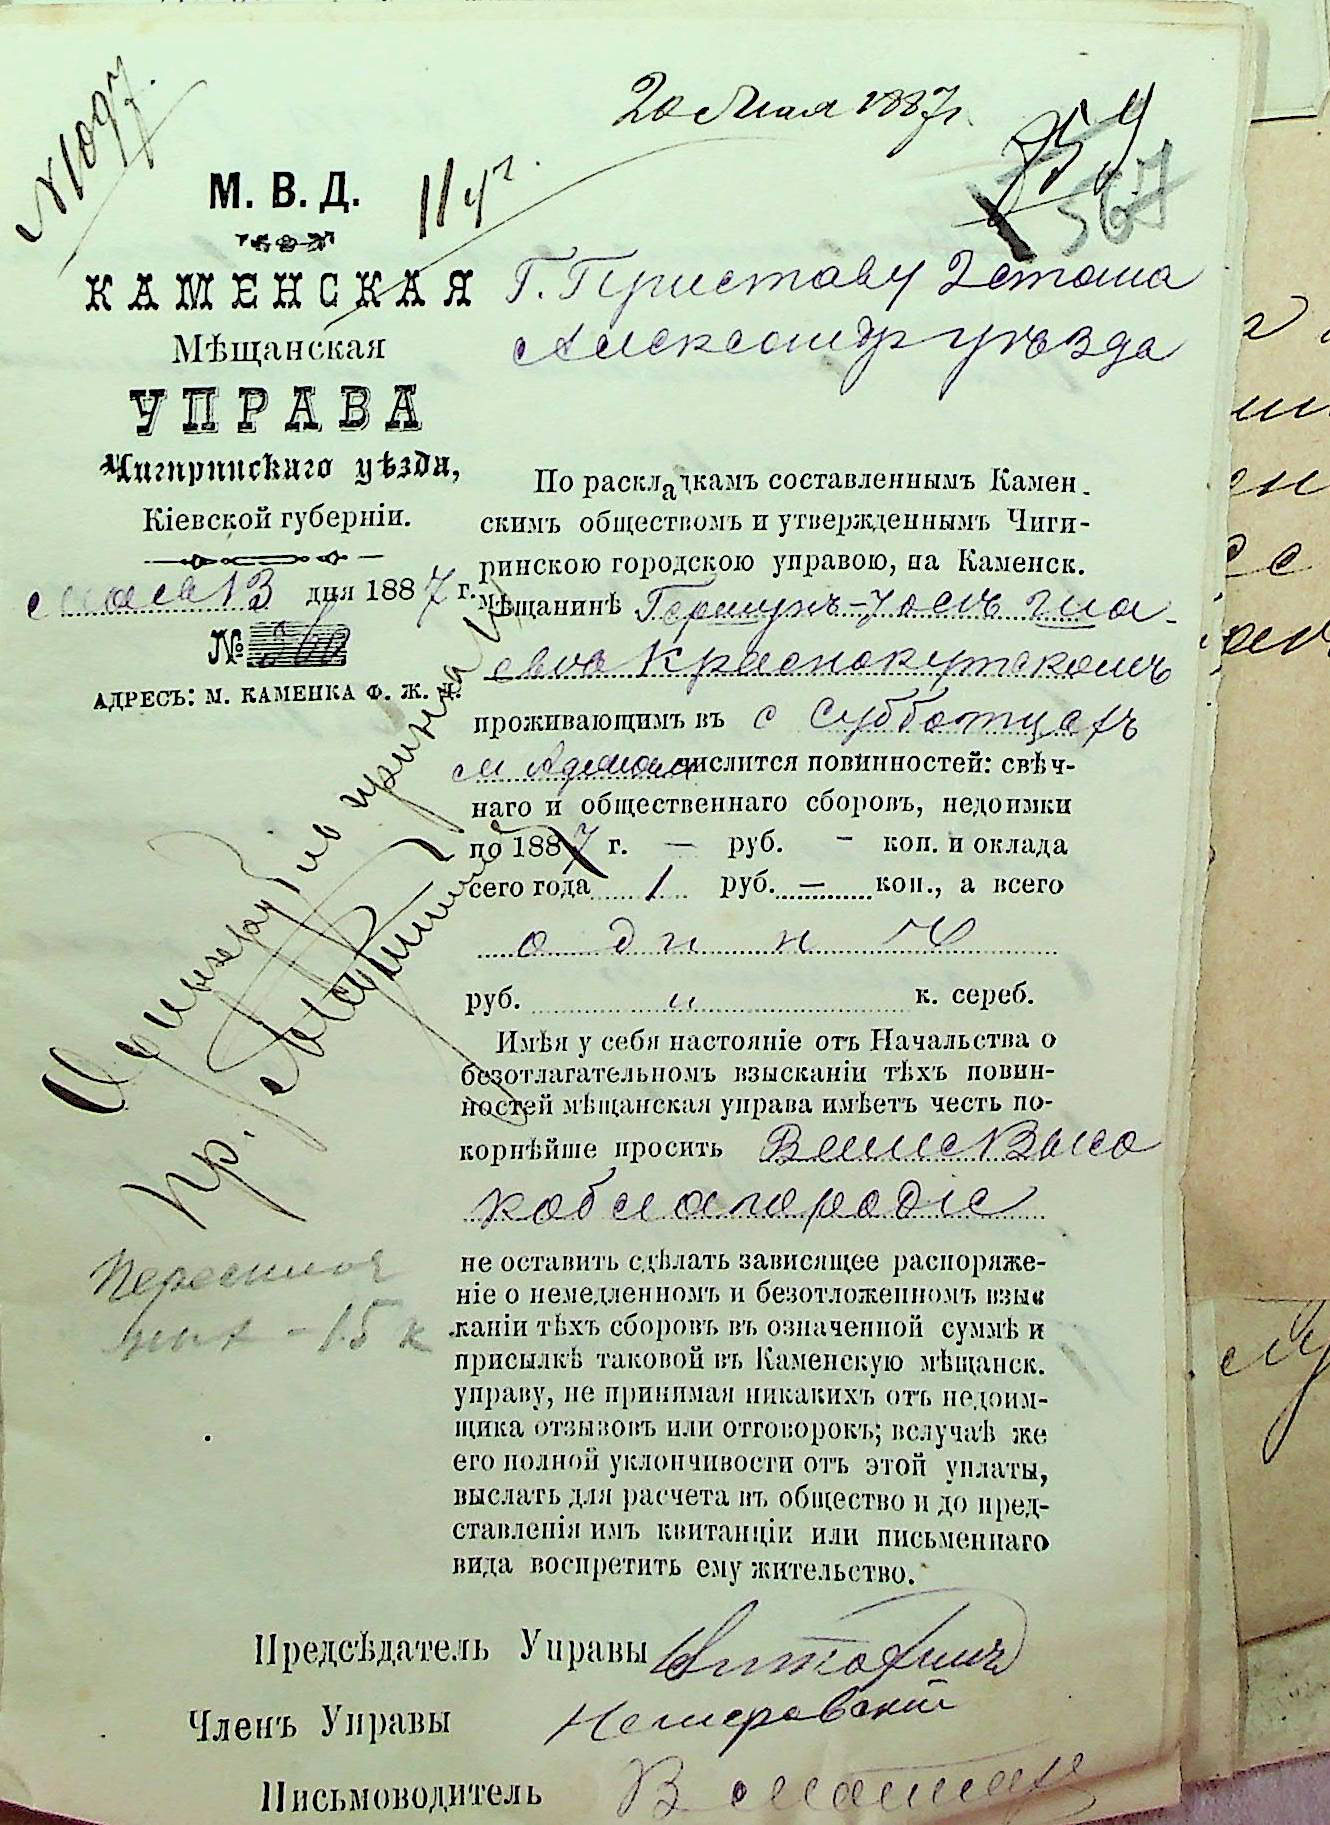 № 1097
20 Мая 1887 г.
359
567
11 ч.
М. В. Д.
КАМЕНСКАЯ
Мѣщанская
УПРАВА
Чигиринскаго уѣзда,
Кіевской губерніи.
мая 13 дня 1887 г.
№
АДРЕСЪ: М. КАМЕНКА Ф. Ж. Д.
Г. Приставу 2 стана
Александр уѣзда
По раскладкамъ составленнымъ Камен-
скимъ обществомъ и утвержденнымъ Чиги-
ринскою городскою управою, на Каменск.
мѣщанинѣ Гершунъ-Іосъ
Краснокутскомъ
проживающимъ въ с Субботцахъ
м числится повинностей: свѣч-
наго и общественнаго сборовъ, недоимки
по 1887 г. — руб. — коп. и оклада
сего года 1 руб. — коп., а всего
одинъ
руб. и к. сереб.
Имѣя у себя настояніе отъ Начальства о
безотлагательномъ взысканіи тѣхъ повин-
ностей мѣщанская управа имѣетъ честь по-
корнѣйше просить Ваше Высо
коблагородіе
не оставить сдѣлать зависящее распоряже-
ніе о немедленномъ и безотложенномъ взыс
каніи тѣхъ сборовъ въ означенной суммѣ и
присылкѣ таковой въ Каменскую мѣщанск.
управу, не принимая никакихъ отъ недоим-
щика отзывовъ или отговорокъ; вслучаѣ же
его полной уклончивости отъ этой уплаты,
выслать для расчета въ общество и до пред-
ставленія имъ квитанціи или письменнаго
вида воспретить ему жительство.
пр.
Пересылоч
ныхъ - 15 к
Предсѣдатель Управы
Членъ Управы Немеровскій
Письмоводитель В